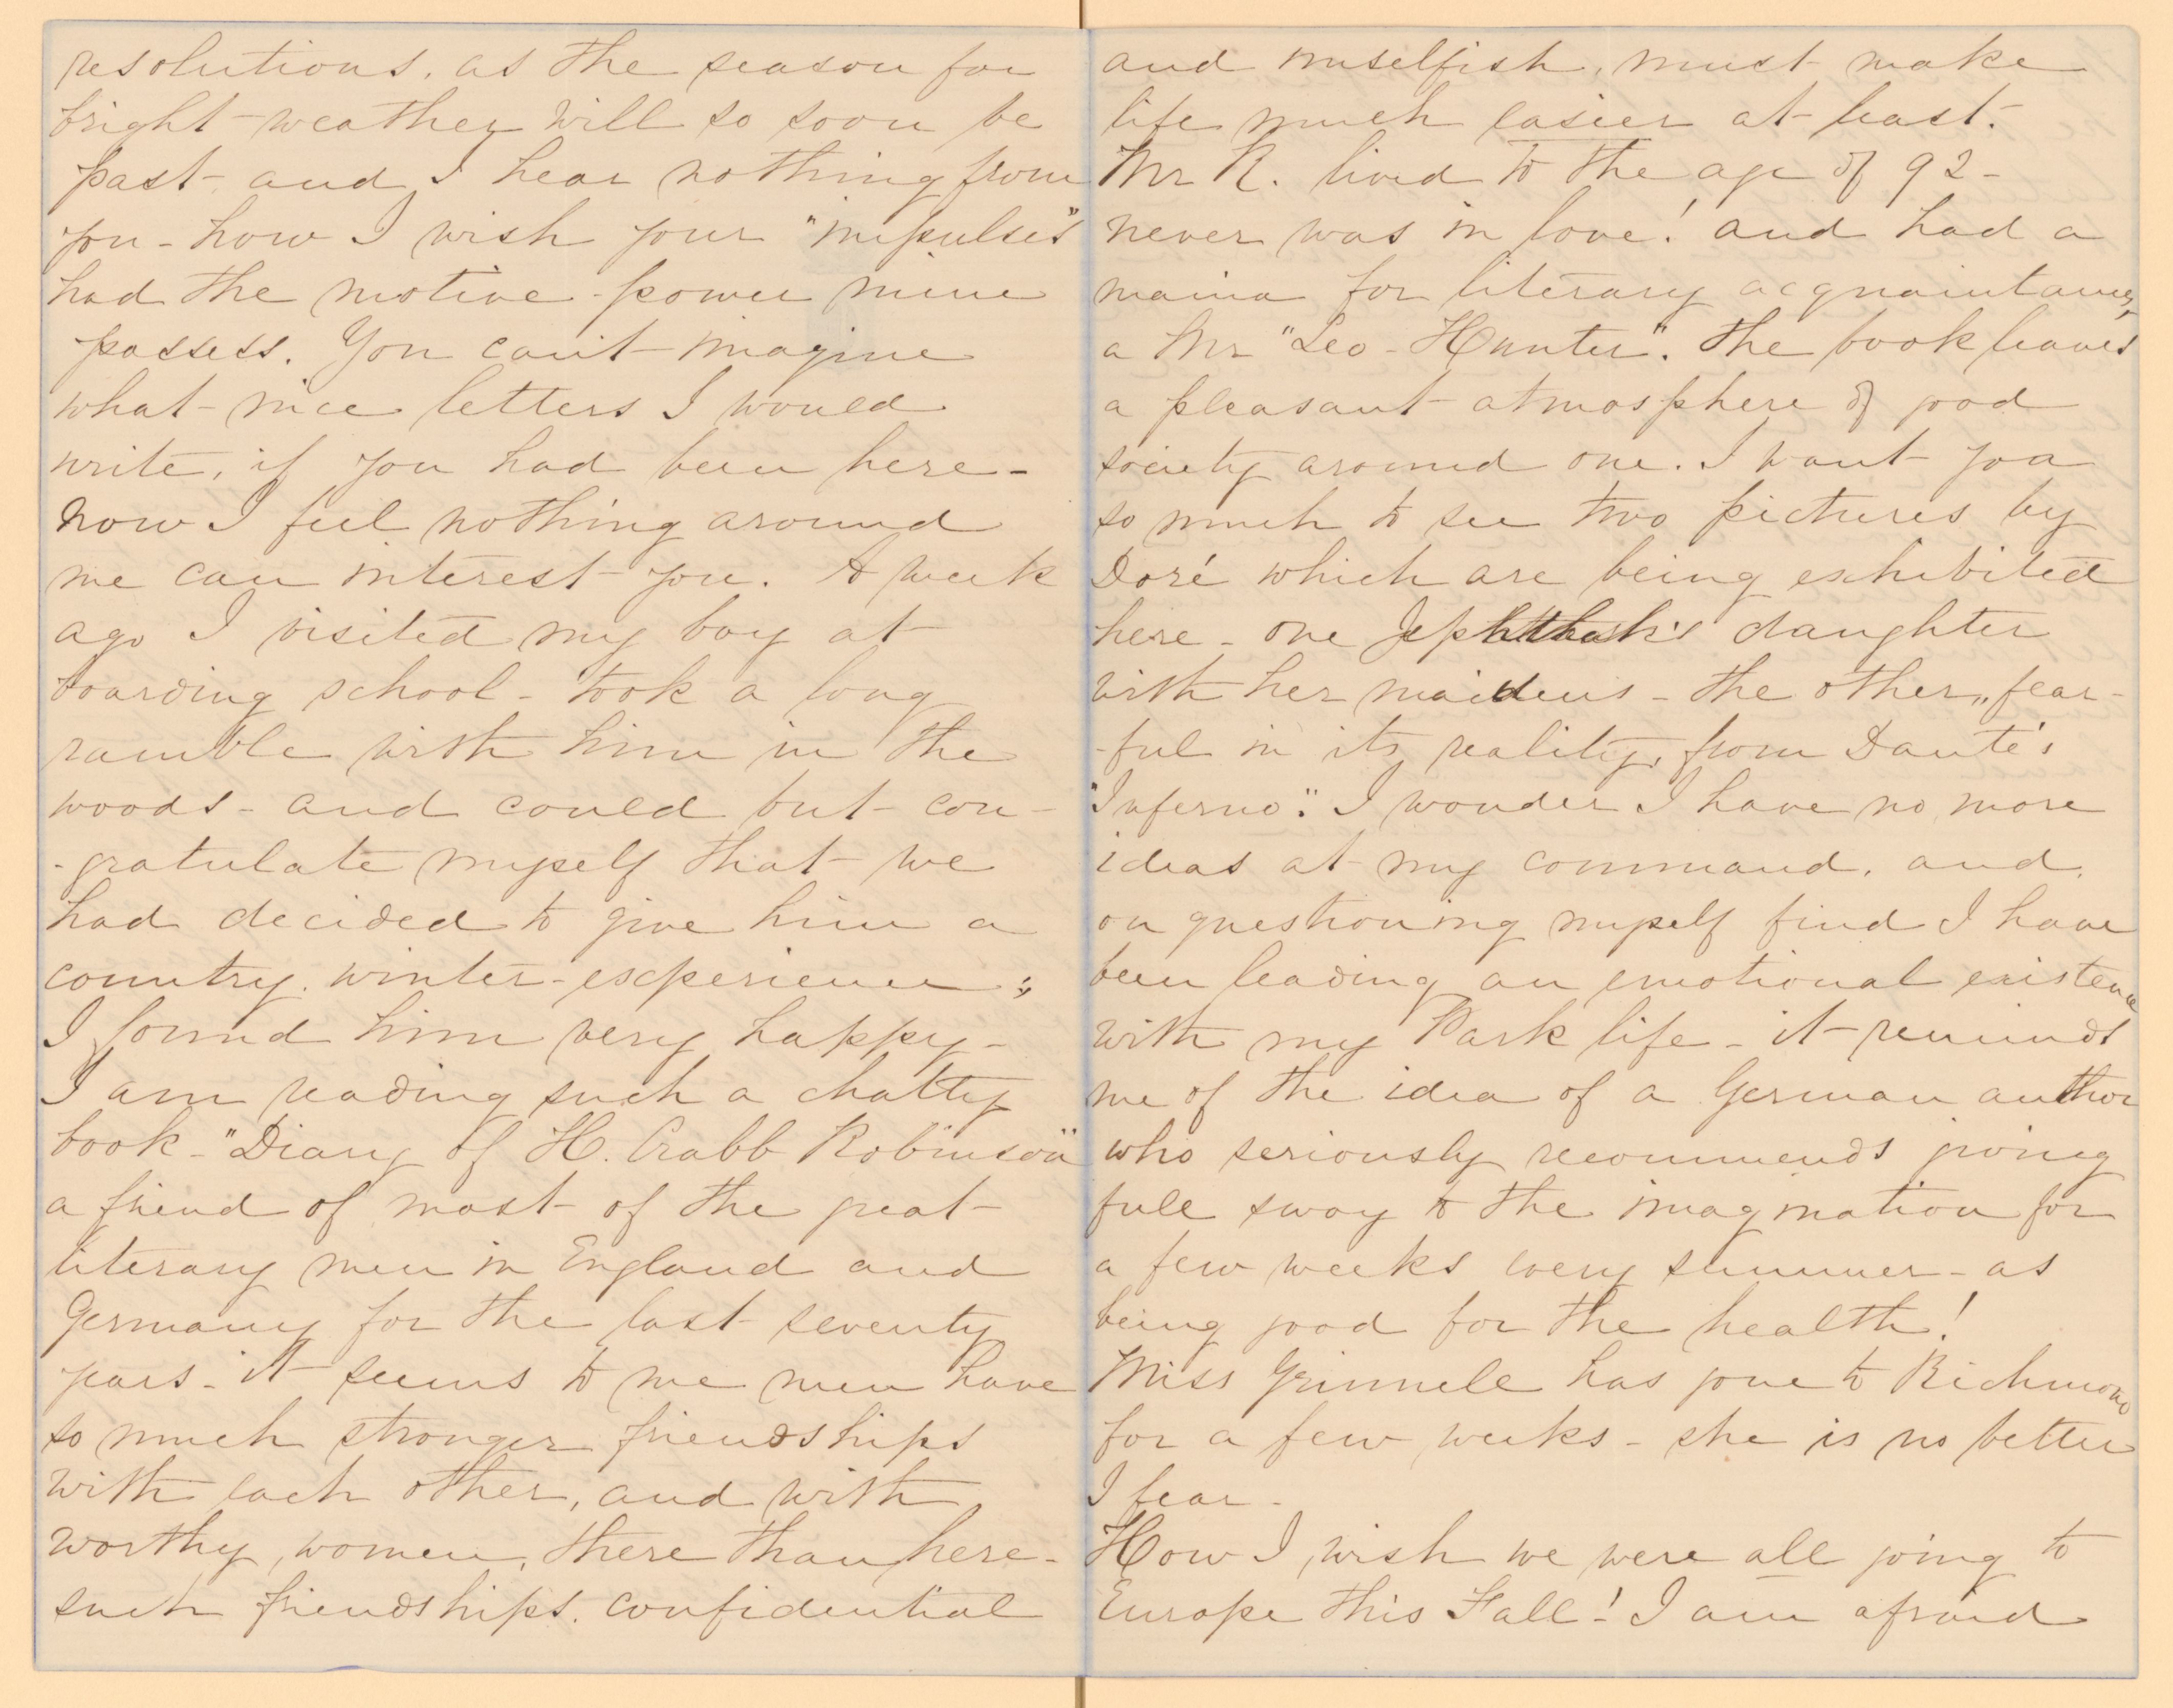 resolutions, as the season for
bright weather will so soon be
past and I hear nothing from
you - how I wish your "impulses"
had the motive-power mine
possess. You can't imagine
what nice letters I would
write, if you had been here -
now I feel nothing around
me can interest you. A week
ago I visited my boy at
boarding school - took a long
ramble with him in the
woods - and could but con-
-gratulate myself that we
had decided to give him a
country winter-experience;
I found him very happy -
I am reading such a chatty
book - "Diary of H. Crabb Robinson"
a friend of most of the great
literary men in England and
Germany for the last seventy
years - it seems to me men have
so much stronger friendships
with each other, and with
worthy women, there than here -
such friendships, confidential
and unselfish, must make
life much easier at least.
Mr R. lived to the age of 92 -
never was in love! and had a
maina for literary acquaintances,
a Mr "Leo-Hunter". The book leaves
a pleasant atmosphere of good
society around one. I want you
so much to see two pictures by
Doré which are being exhibited
here - one Jephthah's daughter
with her maidens - the other, fear-
-ful in its reality, from Dante's
"Inferno". I wonder I have no more
ideas at my command, and
on questioning myself find I have
been leading an emotional existence
with my Park life - it reminds
me of the idea of a German author
who seriously recommends giving
full sway to the imagination for
a few weeks every summer - as
being good for the health!
Miss Grinnell has gone to Richmond
for a few weeks - she is no better
I fear -
How I wish we were all going to
Europe this Fall! I am afraid